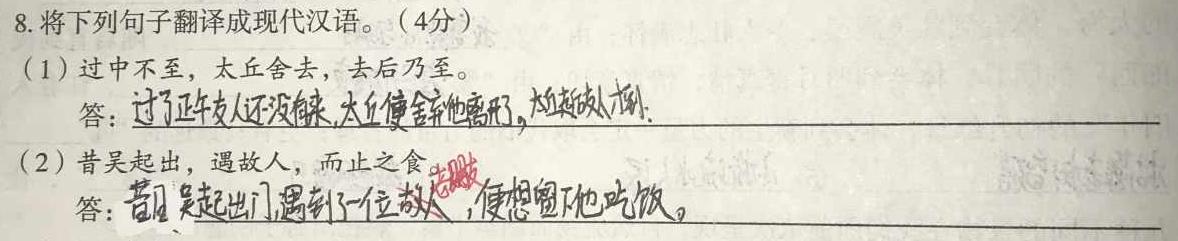 8.将下列句子翻译成现代汉语。（4分）
（1）过中不至，太丘舍去，去后乃至。
答：过了正午友人还没有来,太丘便舍弃他离开了。太丘走后友人才到.
（2）昔吴起出，遇故人，而止之食。
答：昔日吴起出门,遇到了一位故人老朋友,便想留下他吃饭。